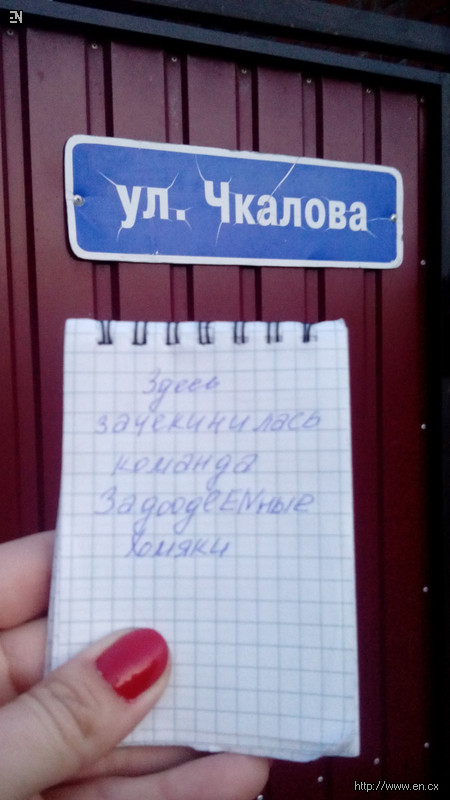 EN
ул. Чкалова
Здесь
зачекинилась
команда
ЗадоодlENные
хомяки
http://www.en.cx